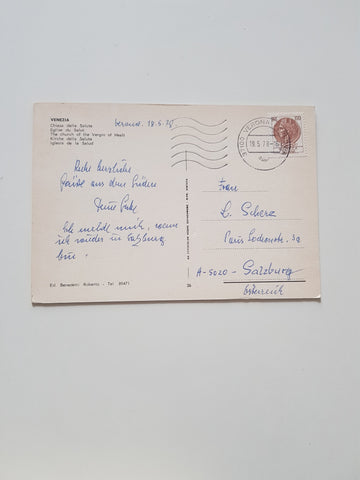 VENEZIA
Chiesa della Salute
Eglise du Salut
The Church of the Vergin of Healt
Kirche della Salud
Iglesia de la Salud
18.5.78
37100 VERONA
18.5.78
herzliche
Grüße aus dem Süden
Deine
Ich melde mich, wenn
ich wieder in Salzburg
bin!
Frau
L. Scherz
A-5020 - Salzburg
Österreich
Ed. Benedetti Roberto - Tel. 85471
26